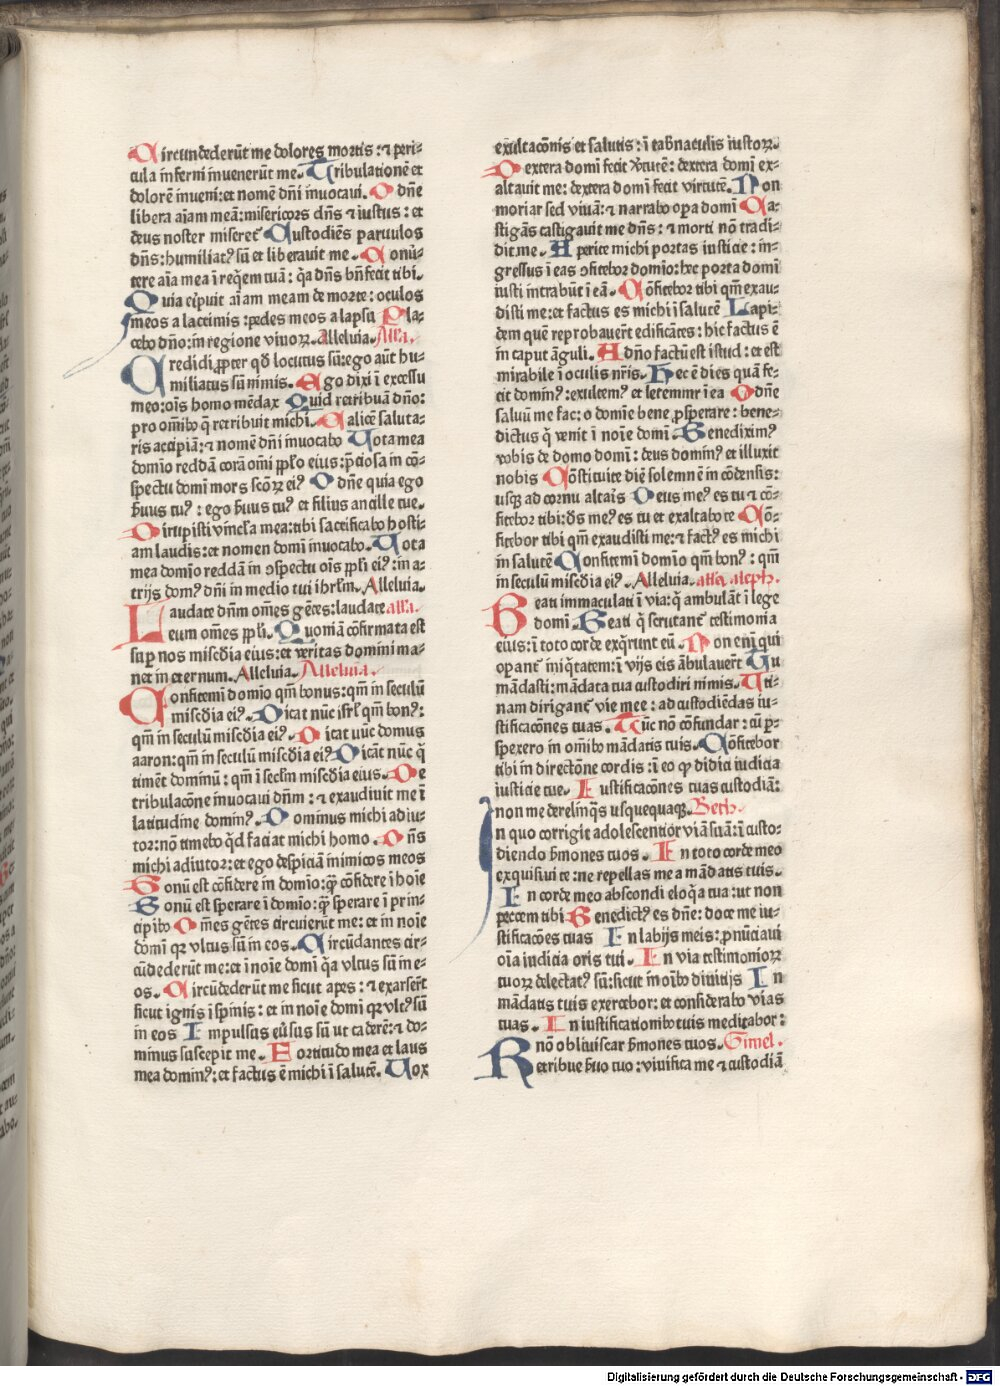 Circundederūt me dolores mortis : ⁊ peri-
cula inferni inuenerūt me. Tribulationē et
dolorē inueni: et nomē dn̄i inuocaui. O dn̄e
libera aīam meā: misericors dn̄s ⁊ iustus : et
deus noster miseret᷑ Custodiēs paruulos
dn̄s: humiliatꝰ sū et liberauit me. Conuer-
tere aīa mea ī reqēm tuā : qa dn̄s bn̄fecit tibi.
Quia eripuit aīam meam de morte: oculos
meos a lacrimis : pedes meos a lapsu Pla-
cebo dn̄o: in regione viuoꝝ. Alleluia. Alla.
Credidi ꝓpter qd̄ locutus sū: ego aūt hu-
miliatus sū nimis. Ego dixi ī excessu
meo: oīs homo mēdax Quid retribuā dn̄o:
pro oīnibꝰ q̄ retribuit michi. Calicē saluta-
ris accipiā: ⁊ nomē dn̄i inuocabo Uota mea
domīo reddā corā omī pplo eius: p̄ciosa in cō-
spectu domī mors scōꝝ eiꝰ O dn̄e quia ego
ẜuus tuꝰ : ego ẜuus tuꝰ et filius ancille tue.
Dirupisti vincl̄a mea: tibi sacrificabo hosti-
am laudis: et nomen domī inuocabo. Uota
mea domīo reddā in ꝯspectu oīs ppl̄i eiꝰ: in a-
trijs domꝰ dn̄i in medio tui ihrl̄m. Alleluia.
Laudate dn̄m om̄es gētes: laudate alla.
eum om̄es ppl̄i. Quoniā cōfirmata est
suꝑ nos misc̄dia eius: et veritas domini ma-
net in eternum. Alleluia. Alleluia.
Confitemī domīo qm̄ bonus: qm̄ in seculū
misc̄dia eiꝰ. Dicat nūc isrl̄ qm̄ bonꝰ:
qm̄ in seculū misc̄dia eiꝰ. Dicat nūc domus
aaron: qm̄ in seculū misc̄dia eiꝰ Dicāt nūc q̄
timēt dominū : qm̄ ī secl̄m misc̄dia eius. De
tribulacōne inuocaui dn̄m : ⁊ exaudiuit me ī
latitudīne dominꝰ. Dominus michi adiu-
tor: nō timebo qd̄ faciat michi homo. Dn̄s
michi adiutor: et ego despiciā inimicos meos
Bonū est cōfidere in domīo: q̄ꝫ cōfidere ī hoīe
Bonū est sperare ī domīo: q̄ꝫ sperare ī prin-
cipibꝰ Om̄es gētes circuierūt me: et in noīe
domī qꝛ vltus sū in eos. Circūdantes cir-
cūdederūt me: et ī noīe domī qa vltus sū in e-
os. Circūdederūt me sicut apes : ⁊ exarserūt
sicut ignis ī spinis : et in noīe domī qꝛ vltꝰ sū
in eos Impulsus eūsus sū ut caderē: ⁊ do-
minus suscepit me. Fortitudo mea et laus
mea dominꝰ: et factus ē michi ī salutē. Uox
exultacōnis et salutis : ī tabn̄aculis iustoꝝ.
Dextera domī fecit v̓tutē: dextera domī ex-
altauit me: dextera domī fecit virtutē. Non
moriar sed viuā: ⁊ narrabo oꝑa domī Ca-
stigās castigauit me dn̄s : ⁊ morti nō tradi-
dit me. Aperite michi portas iusticie : in-
gressus ī eas ꝯfitebor domīo: hec porta domī
iusti intrabūt ī eā. Cōfitebor tibi qm̄ exau-
disti me: et factus es michi ī salutē Lapi-
dem quē reprobauerūt edificātes : hic factus ē
in caput āguli. A dn̄o factū est istud : et est
mirabile ī oculis nr̄is. Hec ē dies quā fe-
cit dominꝰ: exultemꝰ et letemur ī ea O dn̄e
saluū me fac: o domīe bene ꝓsperare : bene-
dictus q̄ venit ī noīe domī. Benediximꝰ
vobis de domo domī : deus dominꝰ et illuxit
nobis Cōstituite diē solemnē in cōdensis:
usqꝫ ad cornu altaris Deus meꝰ es tu ⁊ cō-
fitebor tibi: ds̄ meꝰ es tu et exaltabo te Cō-
fitebor tibi qm̄ exaudisti me: ⁊ factꝰ es michi
in salutē Confitemī domīo qm̄ bonꝰ : qm̄
in seculū misc̄dia eiꝰ. Alleluia. alla aleph.
Beati immaculati ī via: q̄ ambulāt ī lege
domī. Beati q̄ scrutant᷑ testimonia
eius: ī toto corde exq̄runt eū. Non enī qui
opant᷑ iniq̄tatem: ī vijs eiꝰ ābulauer̄t Tu
mādasti: mādata tua custodiri nimis. Uti-
nam dirigant᷑ vie mee : ad custodiēdas iu-
stificacōnes tuas. Tūc nō cōfundar : cū ꝑ-
spexero in om̄ibꝰ mādatis tuis. Cōfitebor
tibi in directōne cordis: ī eo ꝙ didici iudicia
iusticie tue. Iustificacōnes tuas custodiā:
non me derelinq̄s usquequaqꝫ. Beth.
In quo corrigit adolescentior viā suā: ī custo-
diendo ẜmones tuos. In toto corde meo
exquisiui te : ne repellas me a mādatis tuis.
In corde meo abscondi eloq̄a tua : ut non
peccem tibi Benedictꝰ es dn̄e: doce me iu-
stificacōes tuas In labijs meis: ꝓnūciaui
oīa iudicia oris tui. In via testimonioꝝ
tuoꝝ delectatꝰ sū: sicut ī oībꝰ diuitijs In
mādatis tuis exercebor: et considerabo vias
tuas. In iustificationibꝰ tuis meditabor:
nō obliuiscar ẜmones tuos. Gimel.
Retribue ẜuo tuo : viuifica me ⁊ custodiā
Digitalisierung gefördert durch die Deutsche Forschungsgemeinschaft - DFG